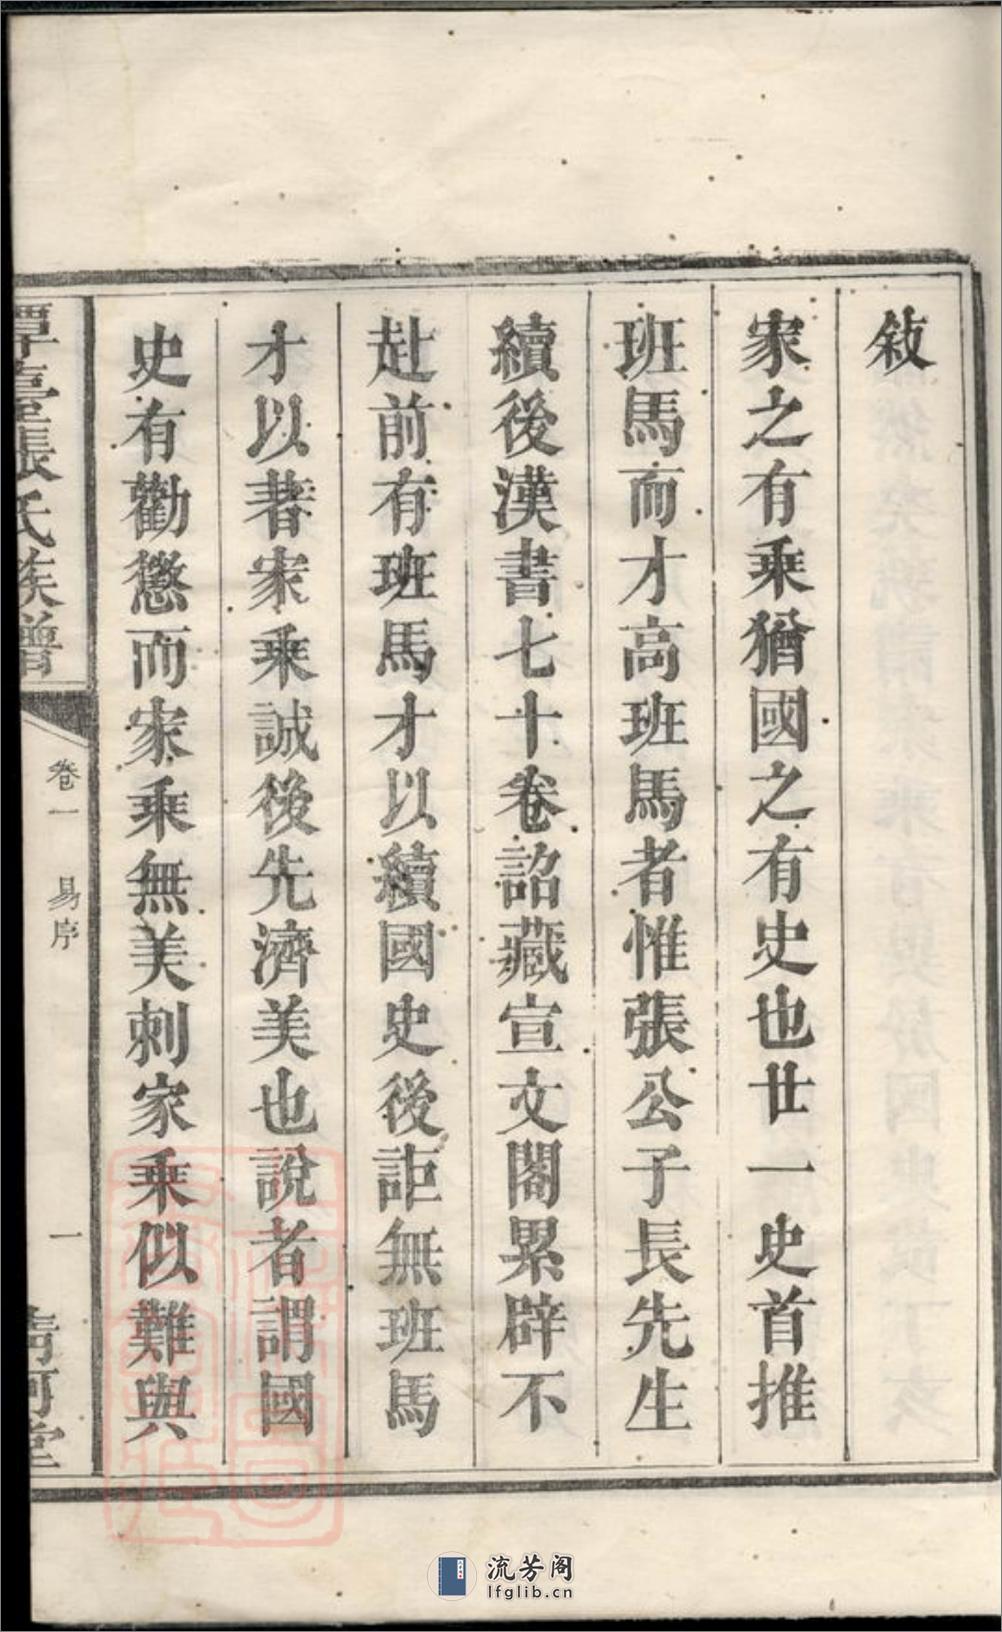 敘
家之有乘猶國之有史也廿一史首推
班馬而才高班馬者惟張公子長先生
續後漢書七十卷詔藏宣文閣累辟不
赴前有班馬才以續國史後詎無班馬
才以著家乘誠後先濟美也說者謂國
史有勸懲而家乘無美刺家乘似難與
張氏族譜
卷一 易序
一
清河堂
流芳阁
lfglib.cn